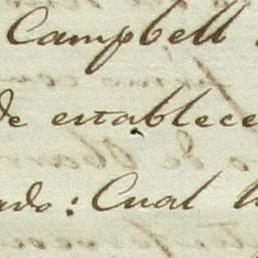 Campbell
de establece
ado: Cual